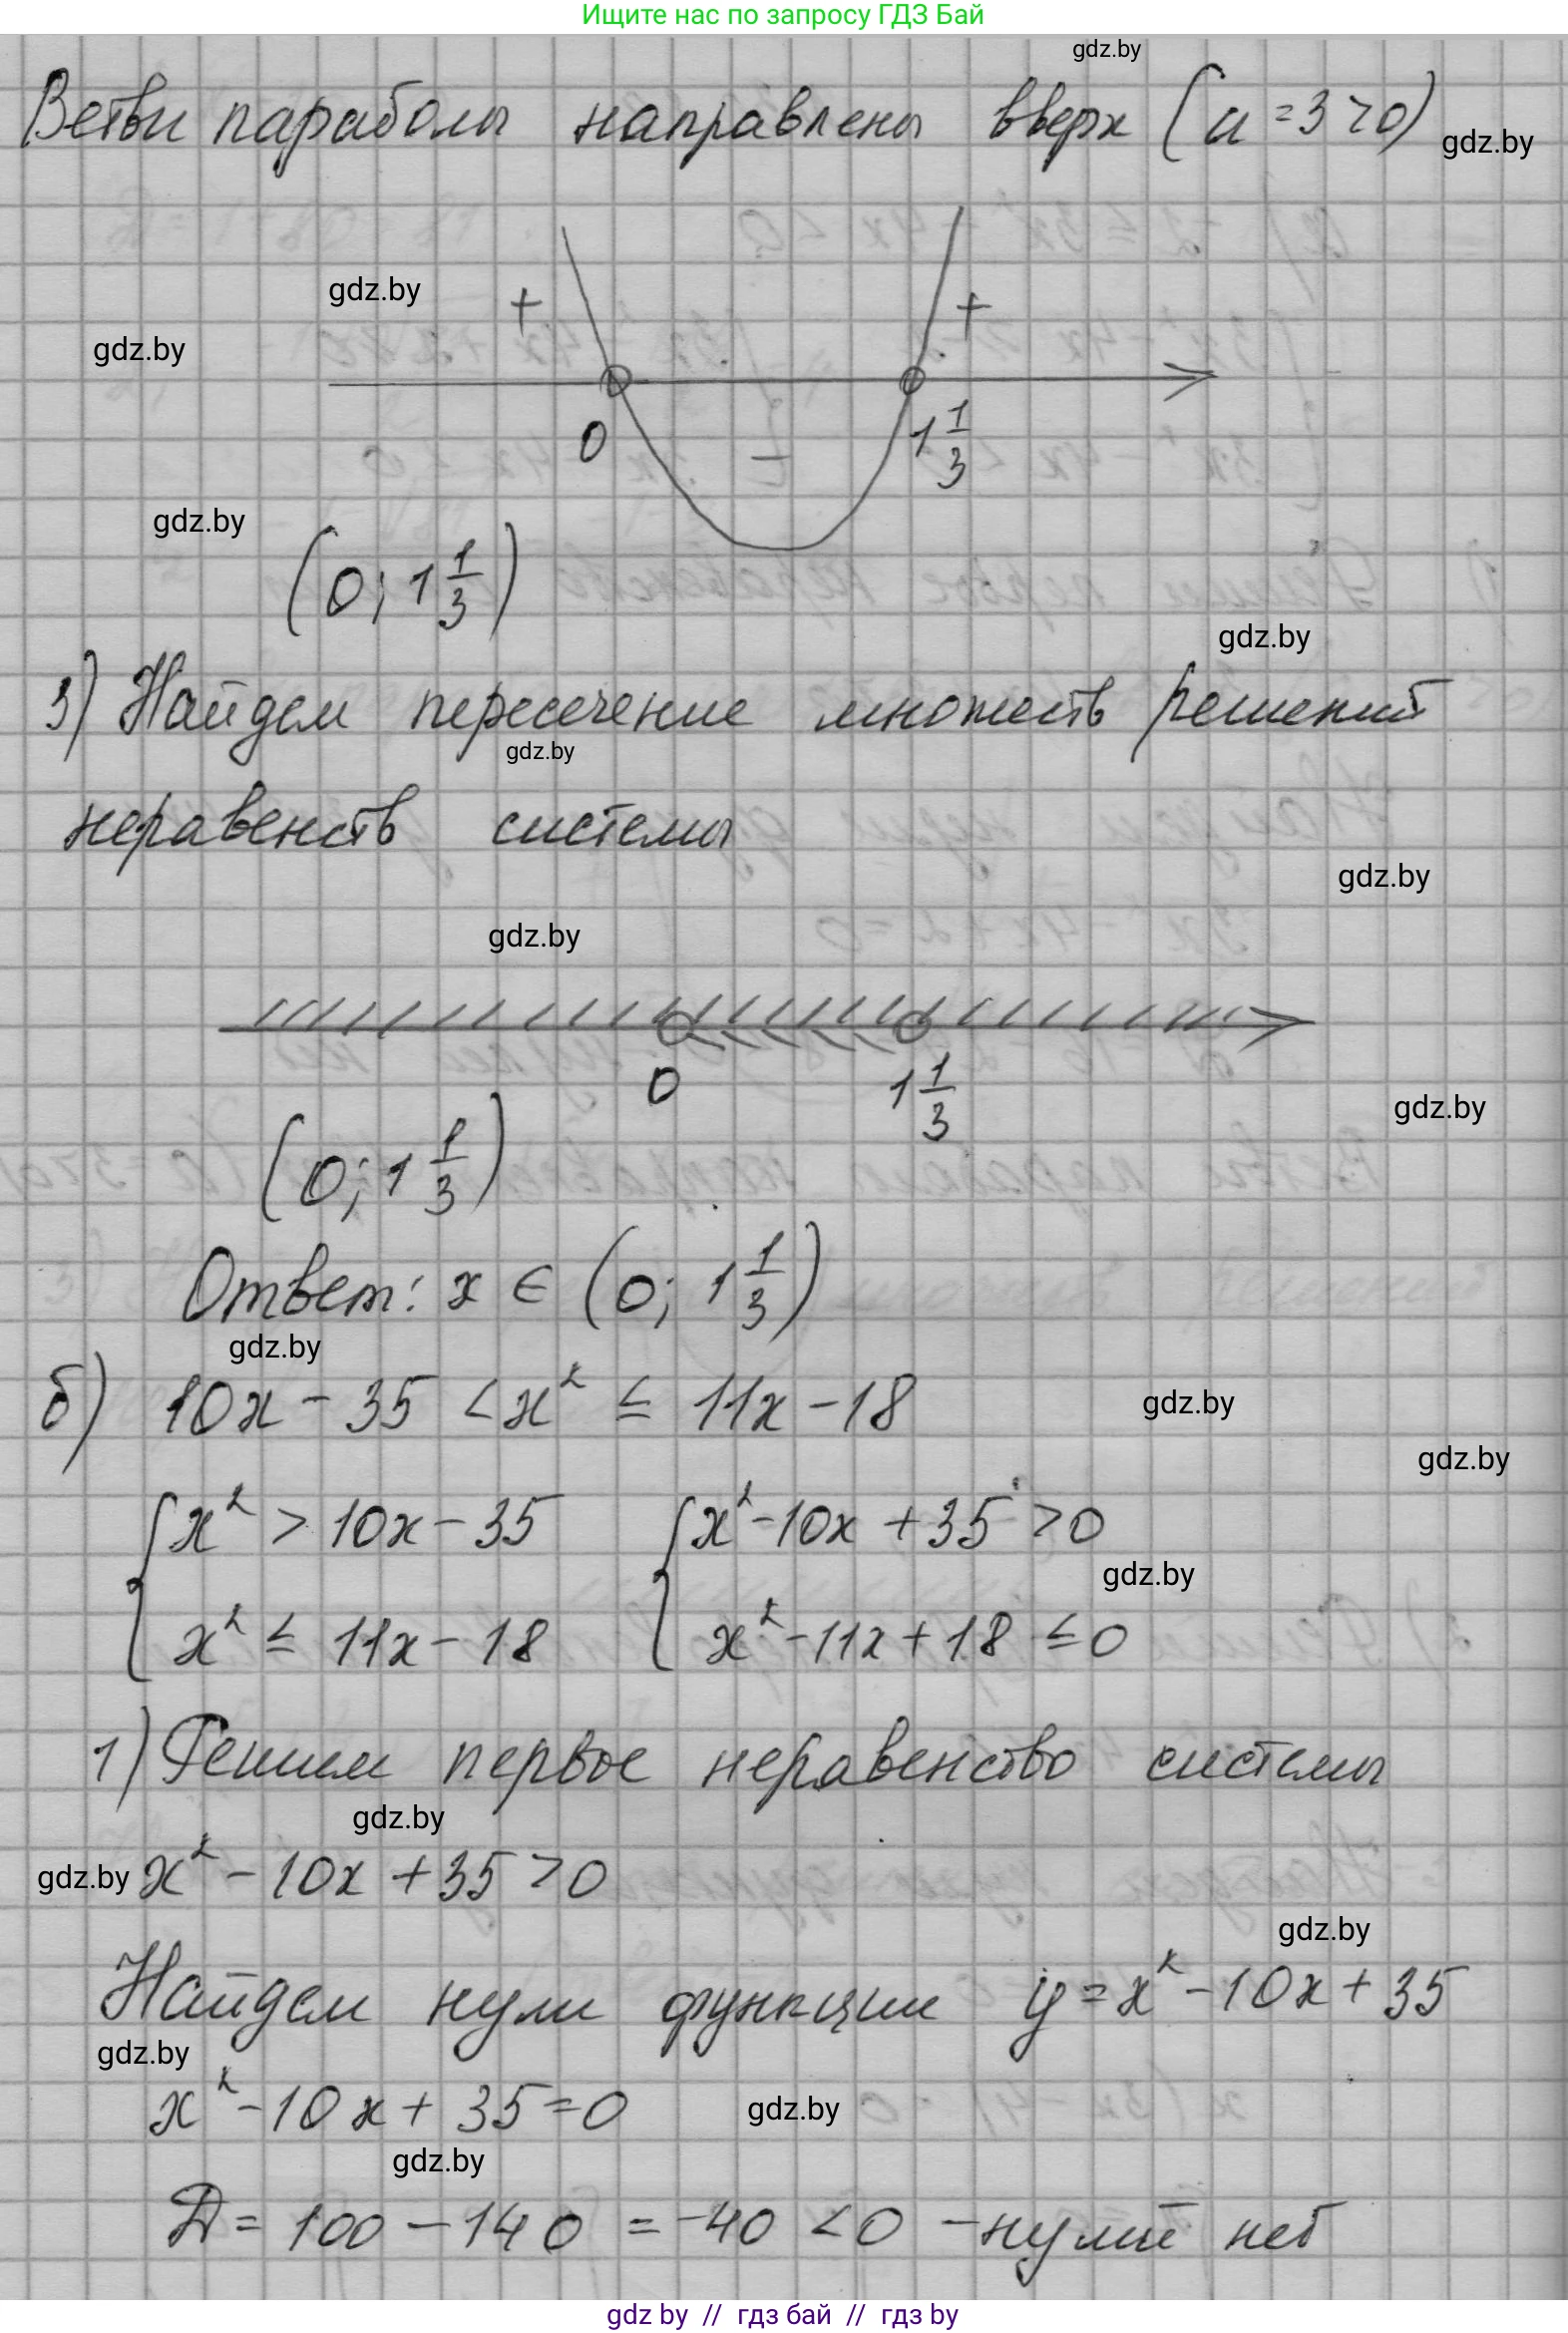 Ищите нас по запросу ГДЗ Бай
gdz.by
Ветви параболы направлены вверх (a = 3 > 0)
gdz.by
gdz.by
+ +
gdz.by
0 1 1/3
–
gdz.by
(0; 1 1/3)
gdz.by
3) Найдем пересечение множеств решений
gdz.by
неравенств системы
gdz.by
gdz.by
0 1 1/3
gdz.by
(0; 1 1/3)
Ответ: x ∈ (0; 1 1/3)
gdz.by
б) 10x – 35 < x² ≤ 11x – 18
gdz.by
gdz.by
{ x² > 10x – 35 { x² – 10x + 35 > 0
gdz.by
x² ≤ 11x – 18 x² – 11x + 18 ≤ 0
1) Решим первое неравенство системы
gdz.by
gdz.by
x² – 10x + 35 > 0
gdz.by
Найдем нули функции y = x² – 10x + 35
gdz.by
x² – 10x + 35 = 0
gdz.by
gdz.by
D = 100 – 140 = –40 < 0 – нулей нет
gdz by // гдз бай // гдз by